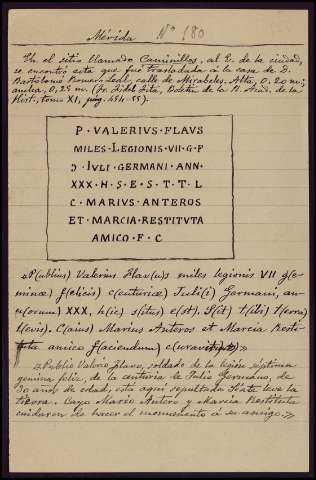 Mérida Nº 180
En el sitio llamado Caminillos, al E. de la ciudad,
se encontró esta que fué trasladada á la casa de D.
Bartolomé Romero Leal, calle de Mirabeles. Alta, 0,20 m;
ancha, 0,25 m. (Fr. Fidel Fita, Boletin de la R. Acad. de la
Hist., tomo XI, pág. 454-55).
P · VALERIVS · FLAVS
MILES · LEGIONIS · VII · G · F
Ɔ IVLI GERMANI · ANN ·
XXX · H · S · E · S · T · T · L
C · MARIVS · ANTEROS
ET · MARCIA · RESTITVTA
AMICO · F · C
«P(ublius) Valerius Flav(u)s miles legionis VII g(e-
minæ) f(elicis) c(enturiæ) Juli(i) Germani, an-
n(orum) XXX, h(ic) s(itus) e(st). S(it) t(ibi) t(erra)
l(evis). C(aius) Marius Anteros et Marcia Resti-
tuta amico f(aciendum) c(uraverunt)»
«Publio Valerio Flavo, soldado de la legión séptima
gemina feliz, de la centuria de Julio Germano, de
30 años de edad, está aquí sepultado. Séate leve la
tierra. Cayo Mario Antero y Marcia Restituta
cuidaron de hacer el monumento á su amigo.»